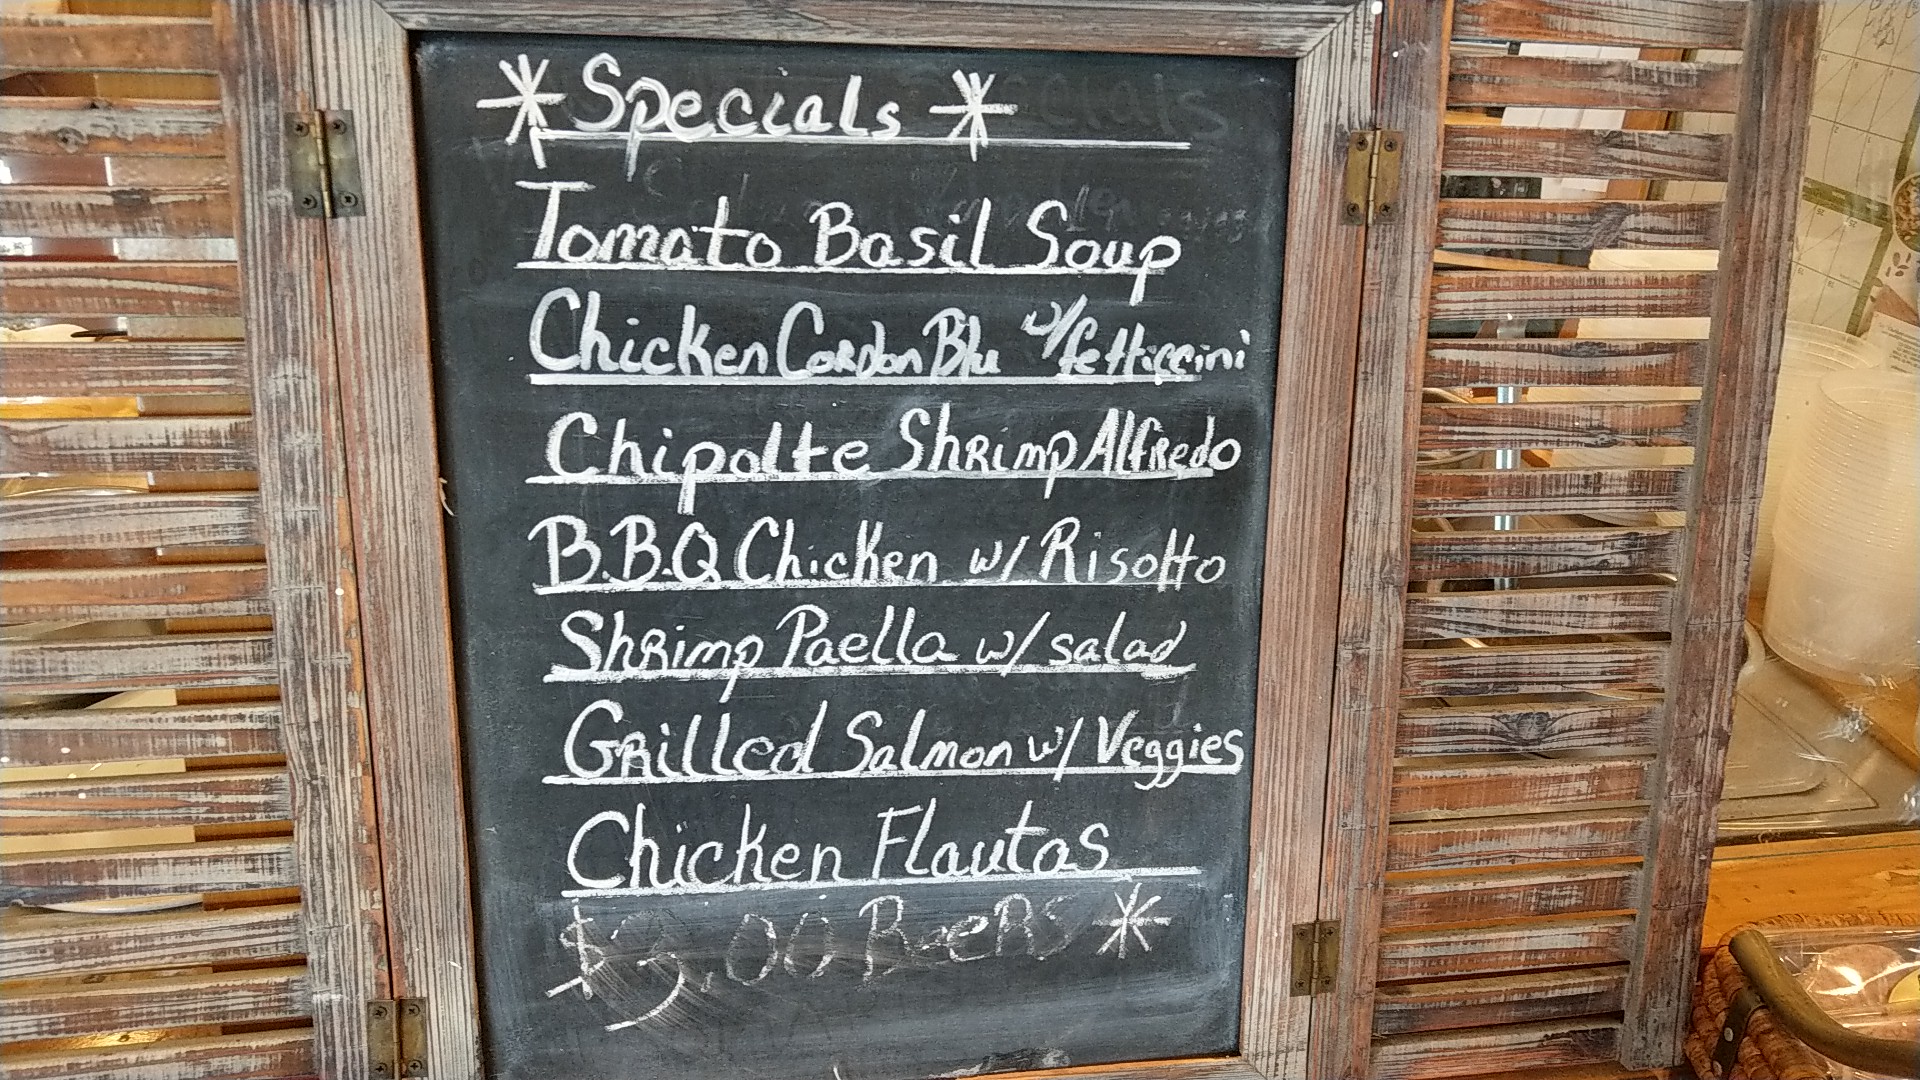 *Specials*
Tomato Basil Soup
Chicken Cordon Blu w/fetticcini
Chipolte Shrimp Alfredo
B.B.Q Chicken w/ Risotto
Shrimp Paella w/ salad
Grilled Salmon w/ Veggies
Chicken Flautas
$3.00 Beers *